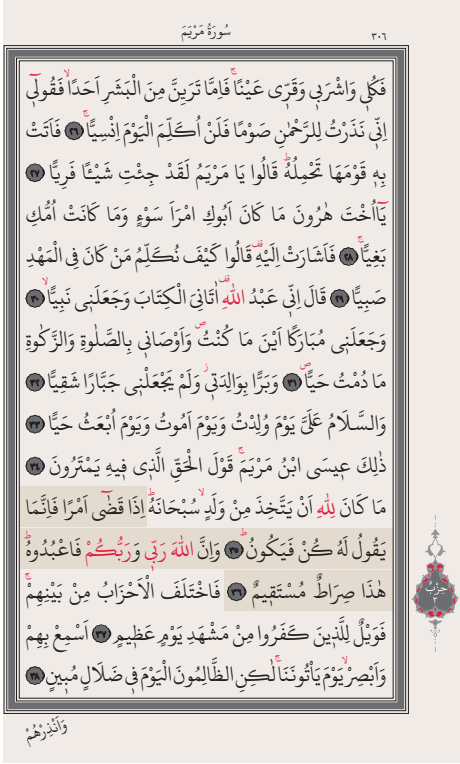 سُورَةُ مَرْيَمَ
٣٠٦
فَكُلِي وَاشْرَبِي وَقَرِّي عَيْنًاۚ فَاِمَّا تَرَيِنَّ مِنَ الْبَشَرِ اَحَدًاۙ فَقُولٓي
اِنّ۪ي نَذَرْتُ لِلرَّحْمٰنِ صَوْمًا فَلَنْ اُكَلِّمَ الْيَوْمَ اِنْسِيًّاۚ ﴿٢٦﴾ فَاَتَتْ
بِه۪ قَوْمَهَا تَحْمِلُهُۜ قَالُوا يَا مَرْيَمُ لَقَدْ جِئْتِ شَيْـًٔا فَرِيًّا ﴿٢٧﴾
يَٓا اُخْتَ هٰرُونَ مَا كَانَ اَبُوكِ امْرَاَ سَوْءٍ وَمَا كَانَتْ اُمُّكِ
بَغِيًّاۚ ﴿٢٨﴾ فَاَشَارَتْ اِلَيْهِ۠ قَالُوا كَيْفَ نُكَلِّمُ مَنْ كَانَ فِي الْمَهْدِ
صَبِيًّا ﴿٢٩﴾ قَالَ اِنّ۪ي عَبْدُ اللّٰهِ۠ اٰتَانِيَ الْكِتَابَ وَجَعَلَن۪ي نَبِيًّاۙ ﴿٣٠﴾
وَجَعَلَن۪ي مُبَارَكًا اَيْنَ مَا كُنْتُۖ وَاَوْصَان۪ي بِالصَّلٰوةِ وَالزَّكٰوةِ
مَا دُمْتُ حَيًّاۖ ﴿٣١﴾ وَبَرًّا بِوَالِدَت۪يۘ وَلَمْ يَجْعَلْن۪ي جَبَّارًا شَقِيًّا ﴿٣٢﴾
وَالسَّلَامُ عَلَيَّ يَوْمَ وُلِدْتُ وَيَوْمَ اَمُوتُ وَيَوْمَ اُبْعَثُ حَيًّا ﴿٣٣﴾
ذٰلِكَ ع۪يسَى ابْنُ مَرْيَمَۚ قَوْلَ الْحَقِّ الَّذ۪ي ف۪يهِ يَمْتَرُونَ ﴿٣٤﴾
مَا كَانَ لِلّٰهِ اَنْ يَتَّخِذَ مِنْ وَلَدٍۙ سُبْحَانَهُۜ اِذَا قَضٰٓى اَمْرًا فَاِنَّمَا
يَقُولُ لَهُ كُنْ فَيَكُونُۜ ﴿٣٥﴾ وَاِنَّ اللّٰهَ رَبّ۪ي وَرَبُّكُمْ فَاعْبُدُوهُۜ
هٰذَا صِرَاطٌ مُسْتَق۪يمٌ ﴿٣٦﴾ فَاخْتَلَفَ الْاَحْزَابُ مِنْ بَيْنِهِمْۚ
فَوَيْلٌ لِلَّذ۪ينَ كَفَرُوا مِنْ مَشْهَدِ يَوْمٍ عَظ۪يمٍ ﴿٣٧﴾ اَسْمِعْ بِهِمْ
وَاَبْصِرْۙ يَوْمَ يَأْتُونَنَاۚ لٰكِنِ الظَّالِمُونَ الْيَوْمَ ف۪ي ضَلَالٍ مُب۪ينٍ ﴿٣٨﴾
حِزْبٌ
٢
وَاَنْذِرْهُمْ